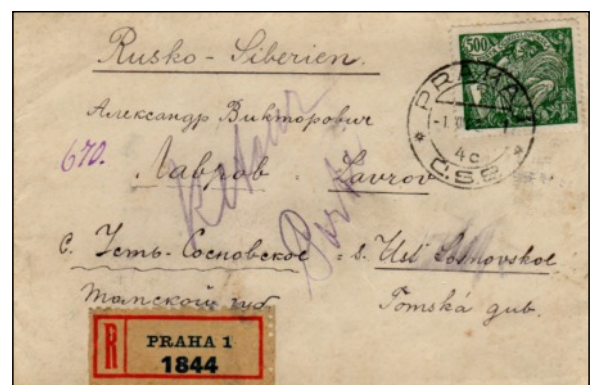 Rusko - Siberien.
500
PRAHA 1
Александр Викторович
670.
Лавров - Lavrov
4c
Č.S.R.
Retour
с. Усть-Сосновское = s. Usť Sosnovskoe
Томской губ. Tomská gub.
R PRAHA 1
1844